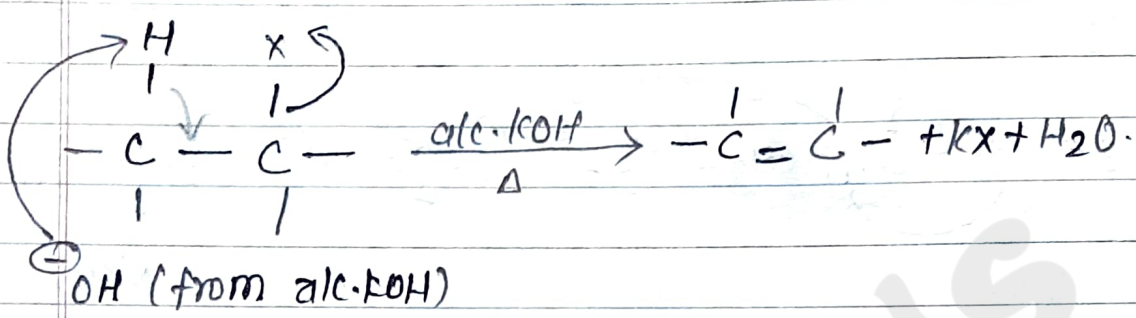 H X
— C — C — alc. KOH → — C = C — + KX + H2O.
Δ
⊖
OH (from alc. KOH)